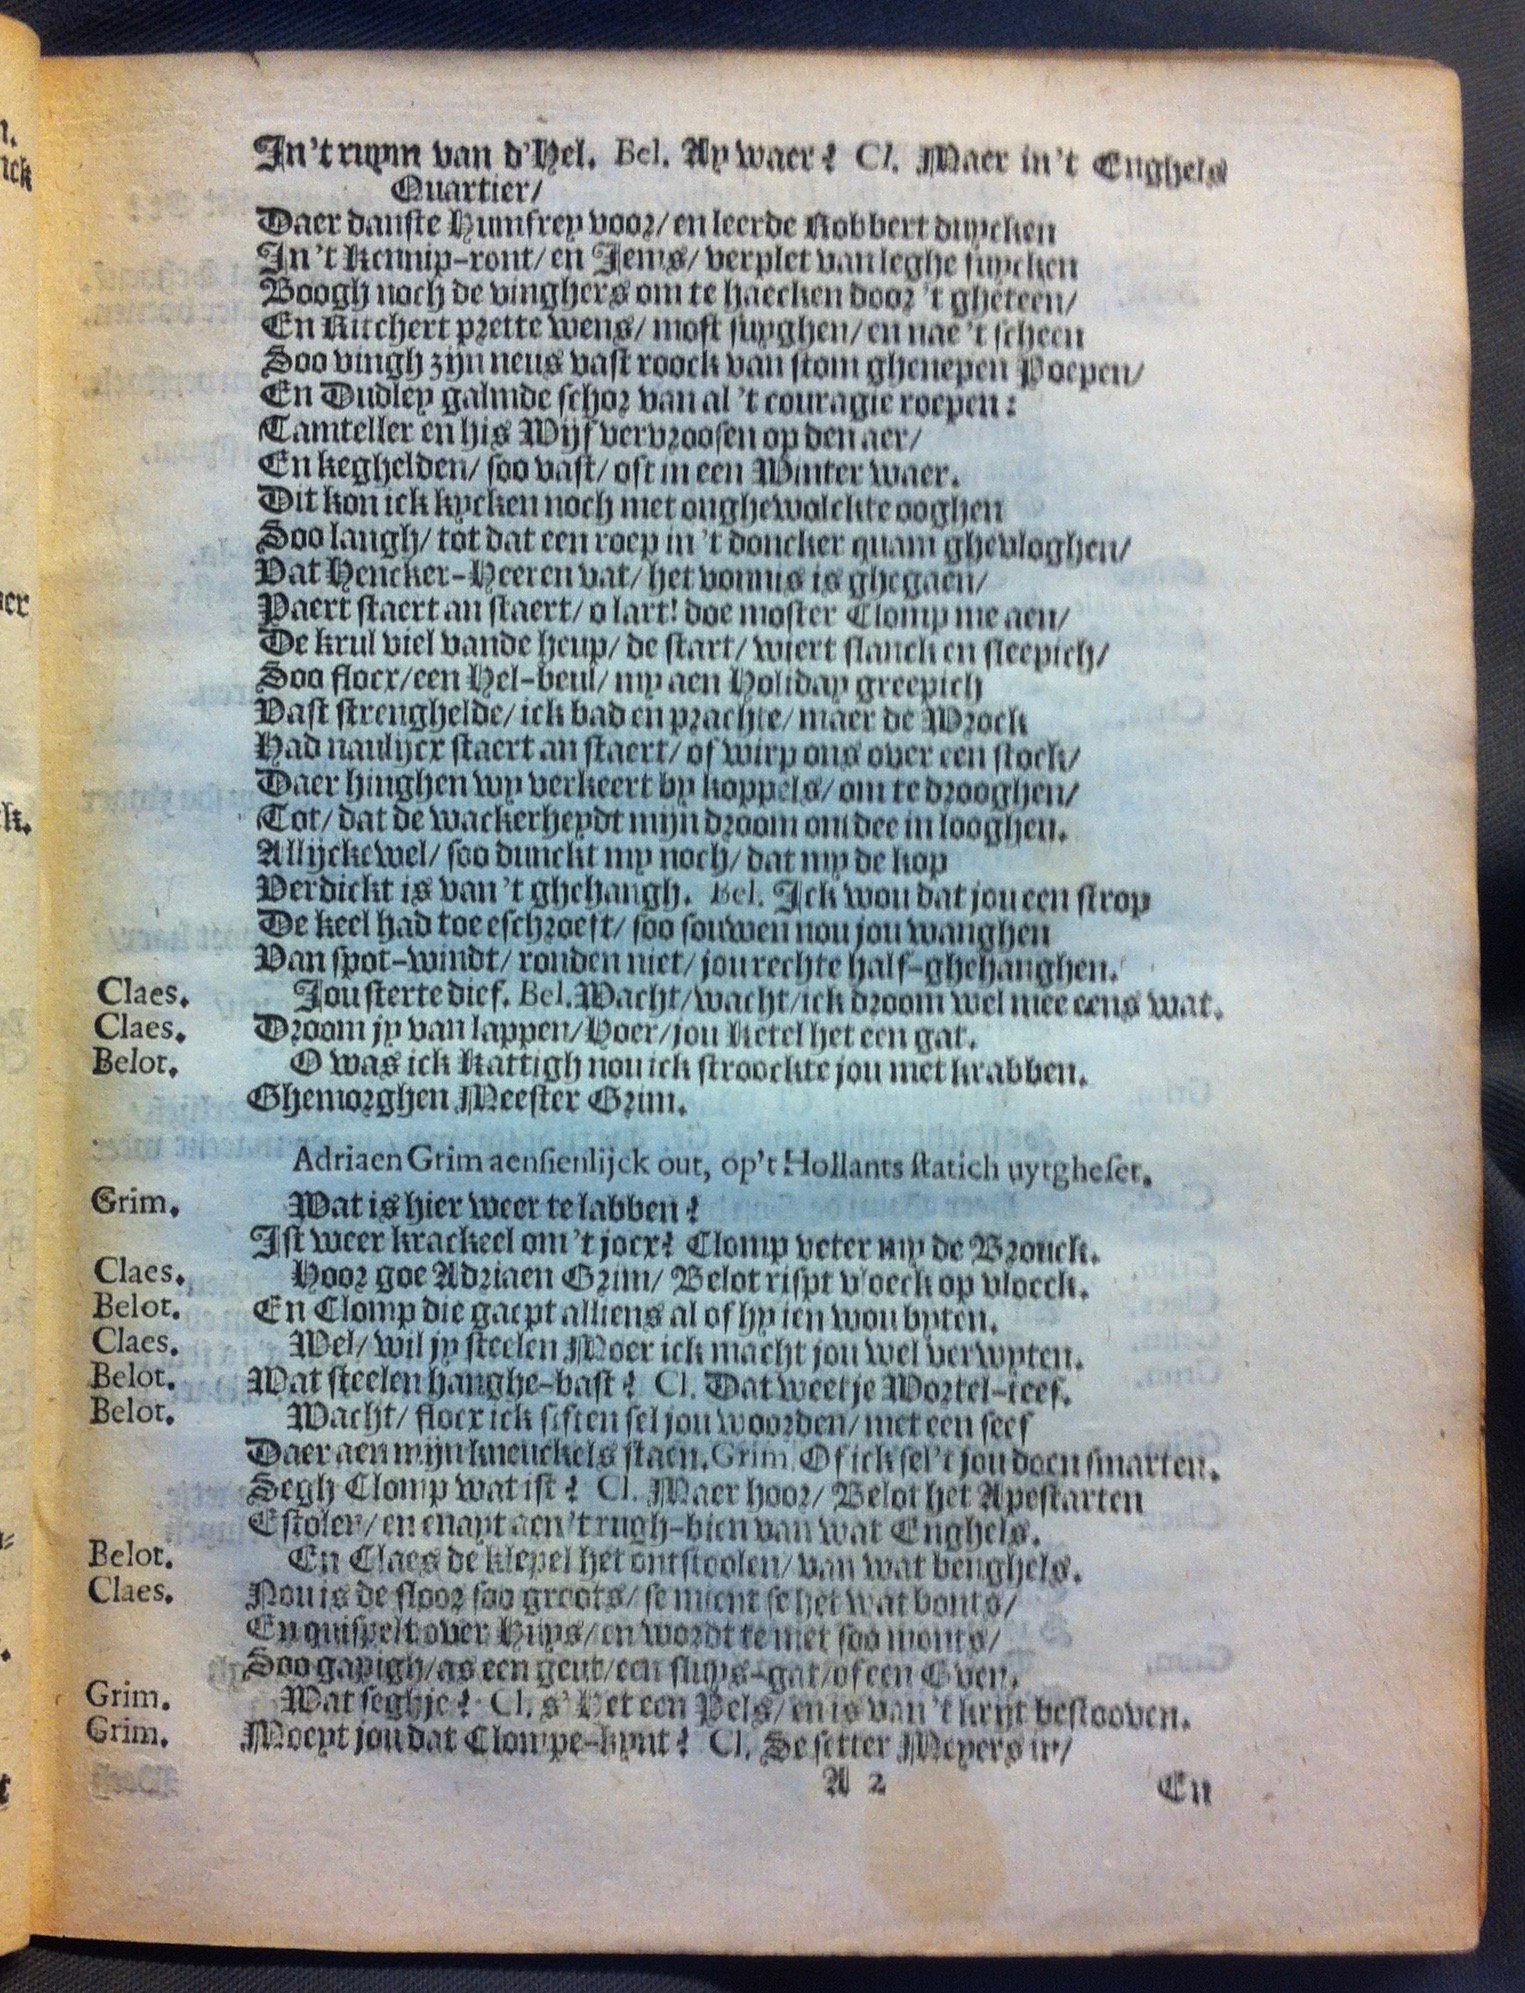 In't ruym van d'Hel. Bel. Ay waer? Cl. Maer in't Enghels
Quartier/
Daer danste Humfrey voor/ en leerde Robbert duycken
In't kennip-ront/ en Jems/ verplet van leghe fuycken
Boogh noch de vinghers om te haecken door 't gheteen/
En Ritchert prette wens/ most suyghen/ en nae 't scheen
Soo vingh zijn neus vast roock van stom ghenepen Poepen/
En Dudley galmde schor van al 't couragie roepen:
Tamteller en his Wijf vervroosen op den aer/
En keghelden/ soo vast/ oft in een Winter waer.
Dit kon ick kycken noch met onghewolckte ooghen
Soo langh/ tot dat een roep in 't doncker quam ghevloghen/
Vat Hencker-Heeren vat/ het vonnis is ghegaen/
Paert staert an staert/ o lart! doe moster Clomp me aen/
De krul viel vande heup/ de start/ wiert slanck en sleepich/
Soo floex/ een Hel-beul/ my aen Holiday greepich
Vast strenghelde/ ick bad en prachte/ maer de Wrock
Had naulijcx staert an staert/ of wirp ons over een stock/
Daer hinghen wy verkeert by koppels/ om te drooghen/
Tot/ dat de wackerheydt mijn droom om dee in looghen.
Allijckewel/ soo dunckt my noch/ dat my de kop
Verdickt is van 't ghehangh. Bel. Ick wou dat jou een strop
De keel had toe eschroeft/ soo souwen nou jou wanghen
Van spot-windt/ ronden niet/ jou rechte half-ghehanghen.
Claes. Jou sterte dief. Bel. Wacht/ wacht/ ick droom wel mee eens wat.
Claes. Droom jy van lappen/ Hoer/ jou ketel het een gat.
Belot. O was ick Kattigh nou ick stroockte jou met krabben.
Ghemorghen Meester Grim.
Adriaen Grim aensienlijck out, op't Hollants statich uytgheset.
Grim. Wat is hier weer te labben?
Ist weer krackeel om 't jocx? Clomp veter my de Brouck.
Claes. Hoor goe Adriaen Grim/ Belot rispt vloeck op vloeck.
Belot. En Clomp die gaept alliens al of hy ien wou byten.
Claes. Wel/ wil jy steelen Moer ick macht jou wel verwyten.
Belot. Wat steelen hanghe-bast? Cl. Dat weet je Wortel-teef.
Belot. Wacht/ floex ick siften sel jou woorden/ met een seef
Daer aen mijn kneuckels staen. Grim. Of ick sel't jou doen smarten.
Segh Clomp wat ist? Cl. Maer hoor/ Belot het Apestarten
Estolen/ en enayt aen 't rugh-bien van wat Enghels.
Belot. En Claes de klepel het ontstoolen/ van wat benghels.
Claes. Nou is de sloor soo groots/ se mient se het wat bonts/
En quispelt over Huys/ en wordt te met soo monts/
Soo gapigh/ as een geut/ een sluys-gat/ of een Oven.
Grim. Wat seghje? Cl. s' Het een Pels/ en is van 't kryt bestooven.
Grim. Moeyt jou dat Clompe-kynt? Cl. Se setter Meyers in/
A 2 En